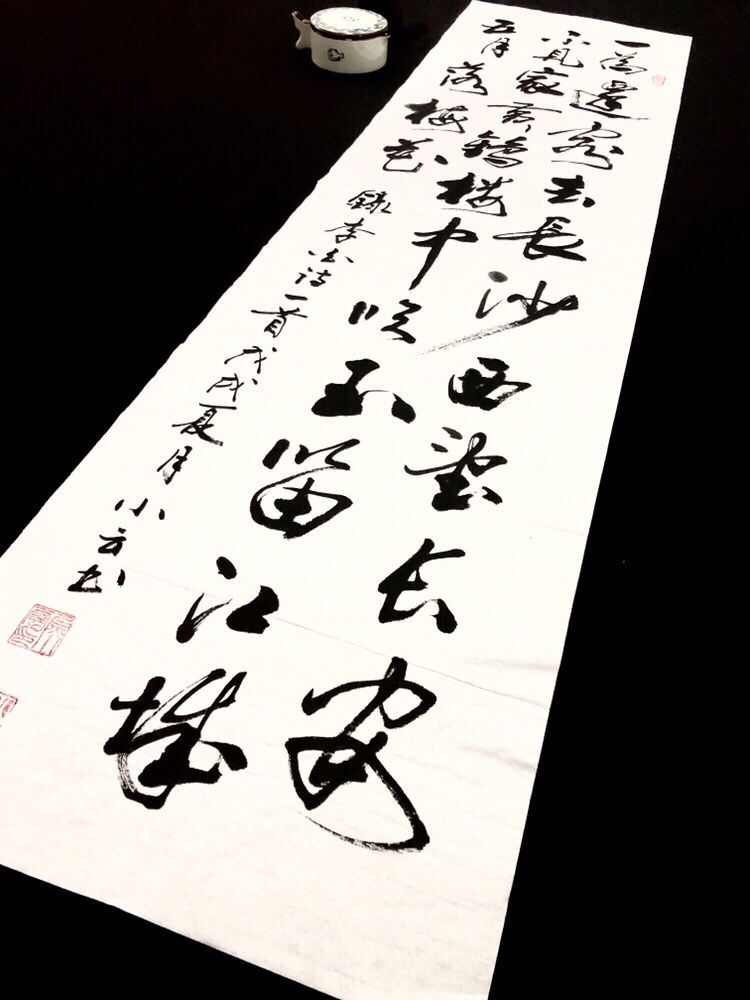 一為遷客去長沙西望长安
不見家黃鶴楼中吹玉笛江城
五月落梅花
錄李白诗一首戊戌夏月小云书